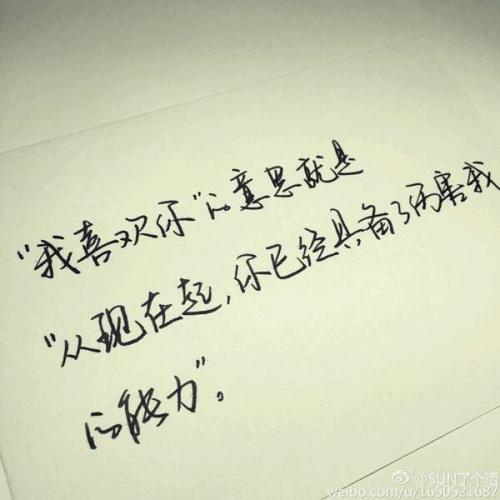 “我喜欢你”的意思就是
“从现在起，你已经具备了伤害我
的能力”。
@SUN了个活
weibo.com/u/1650521687